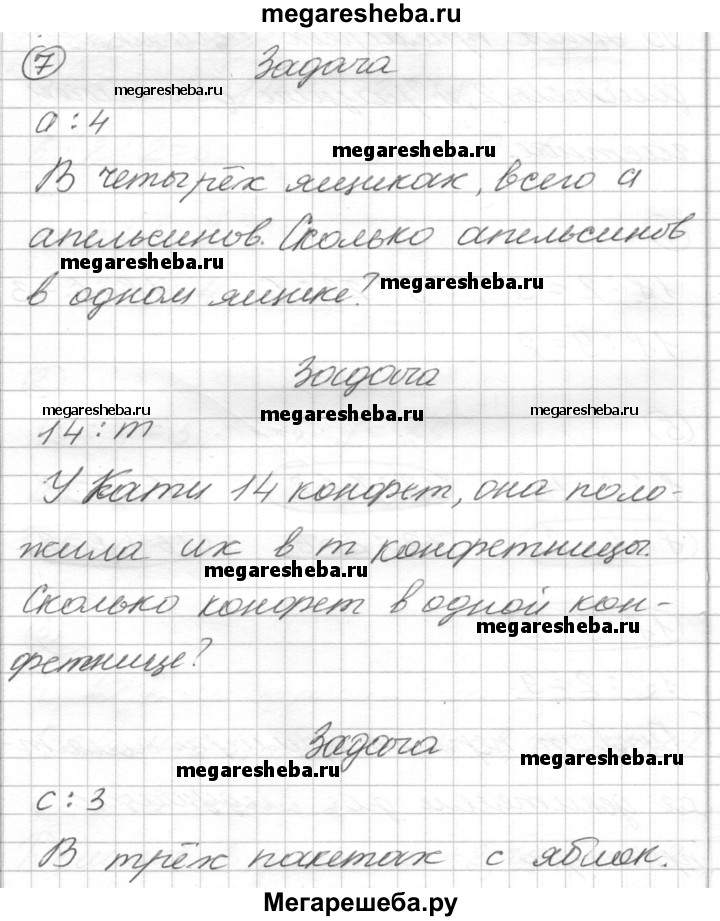 megaresheba.ru
7 Задача
megaresheba.ru
а : 4
megaresheba.ru
В четырёх ящиках, всего а
апельсинов. Сколько апельсинов
megaresheba.ru
в одном ящике?
megaresheba.ru
Задача
megaresheba.ru megaresheba.ru megaresheba.ru
14 : m
У Кати 14 конфет, она поло-
жила их в m конфетницы.
megaresheba.ru
Сколько конфет в одной кон-
megaresheba.ru
фетнице?
Задача
megaresheba.ru
megaresheba.ru
с : 3
В трёх пакетах с яблок.
Мегарешеба.ру